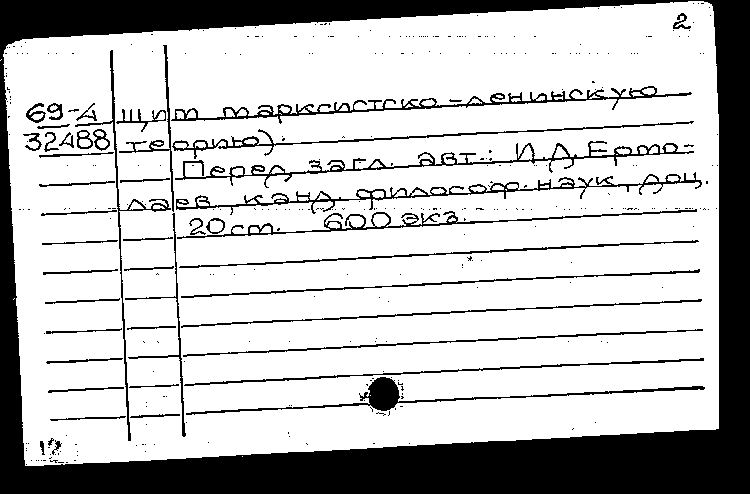 2
69-4 щим марксистско-ленинскую
32488 теорию).
Перед загл. авт.: И.Д. Ермо-
лаев, канд. философ. наук, доц.
20 см. 600 экз.
12